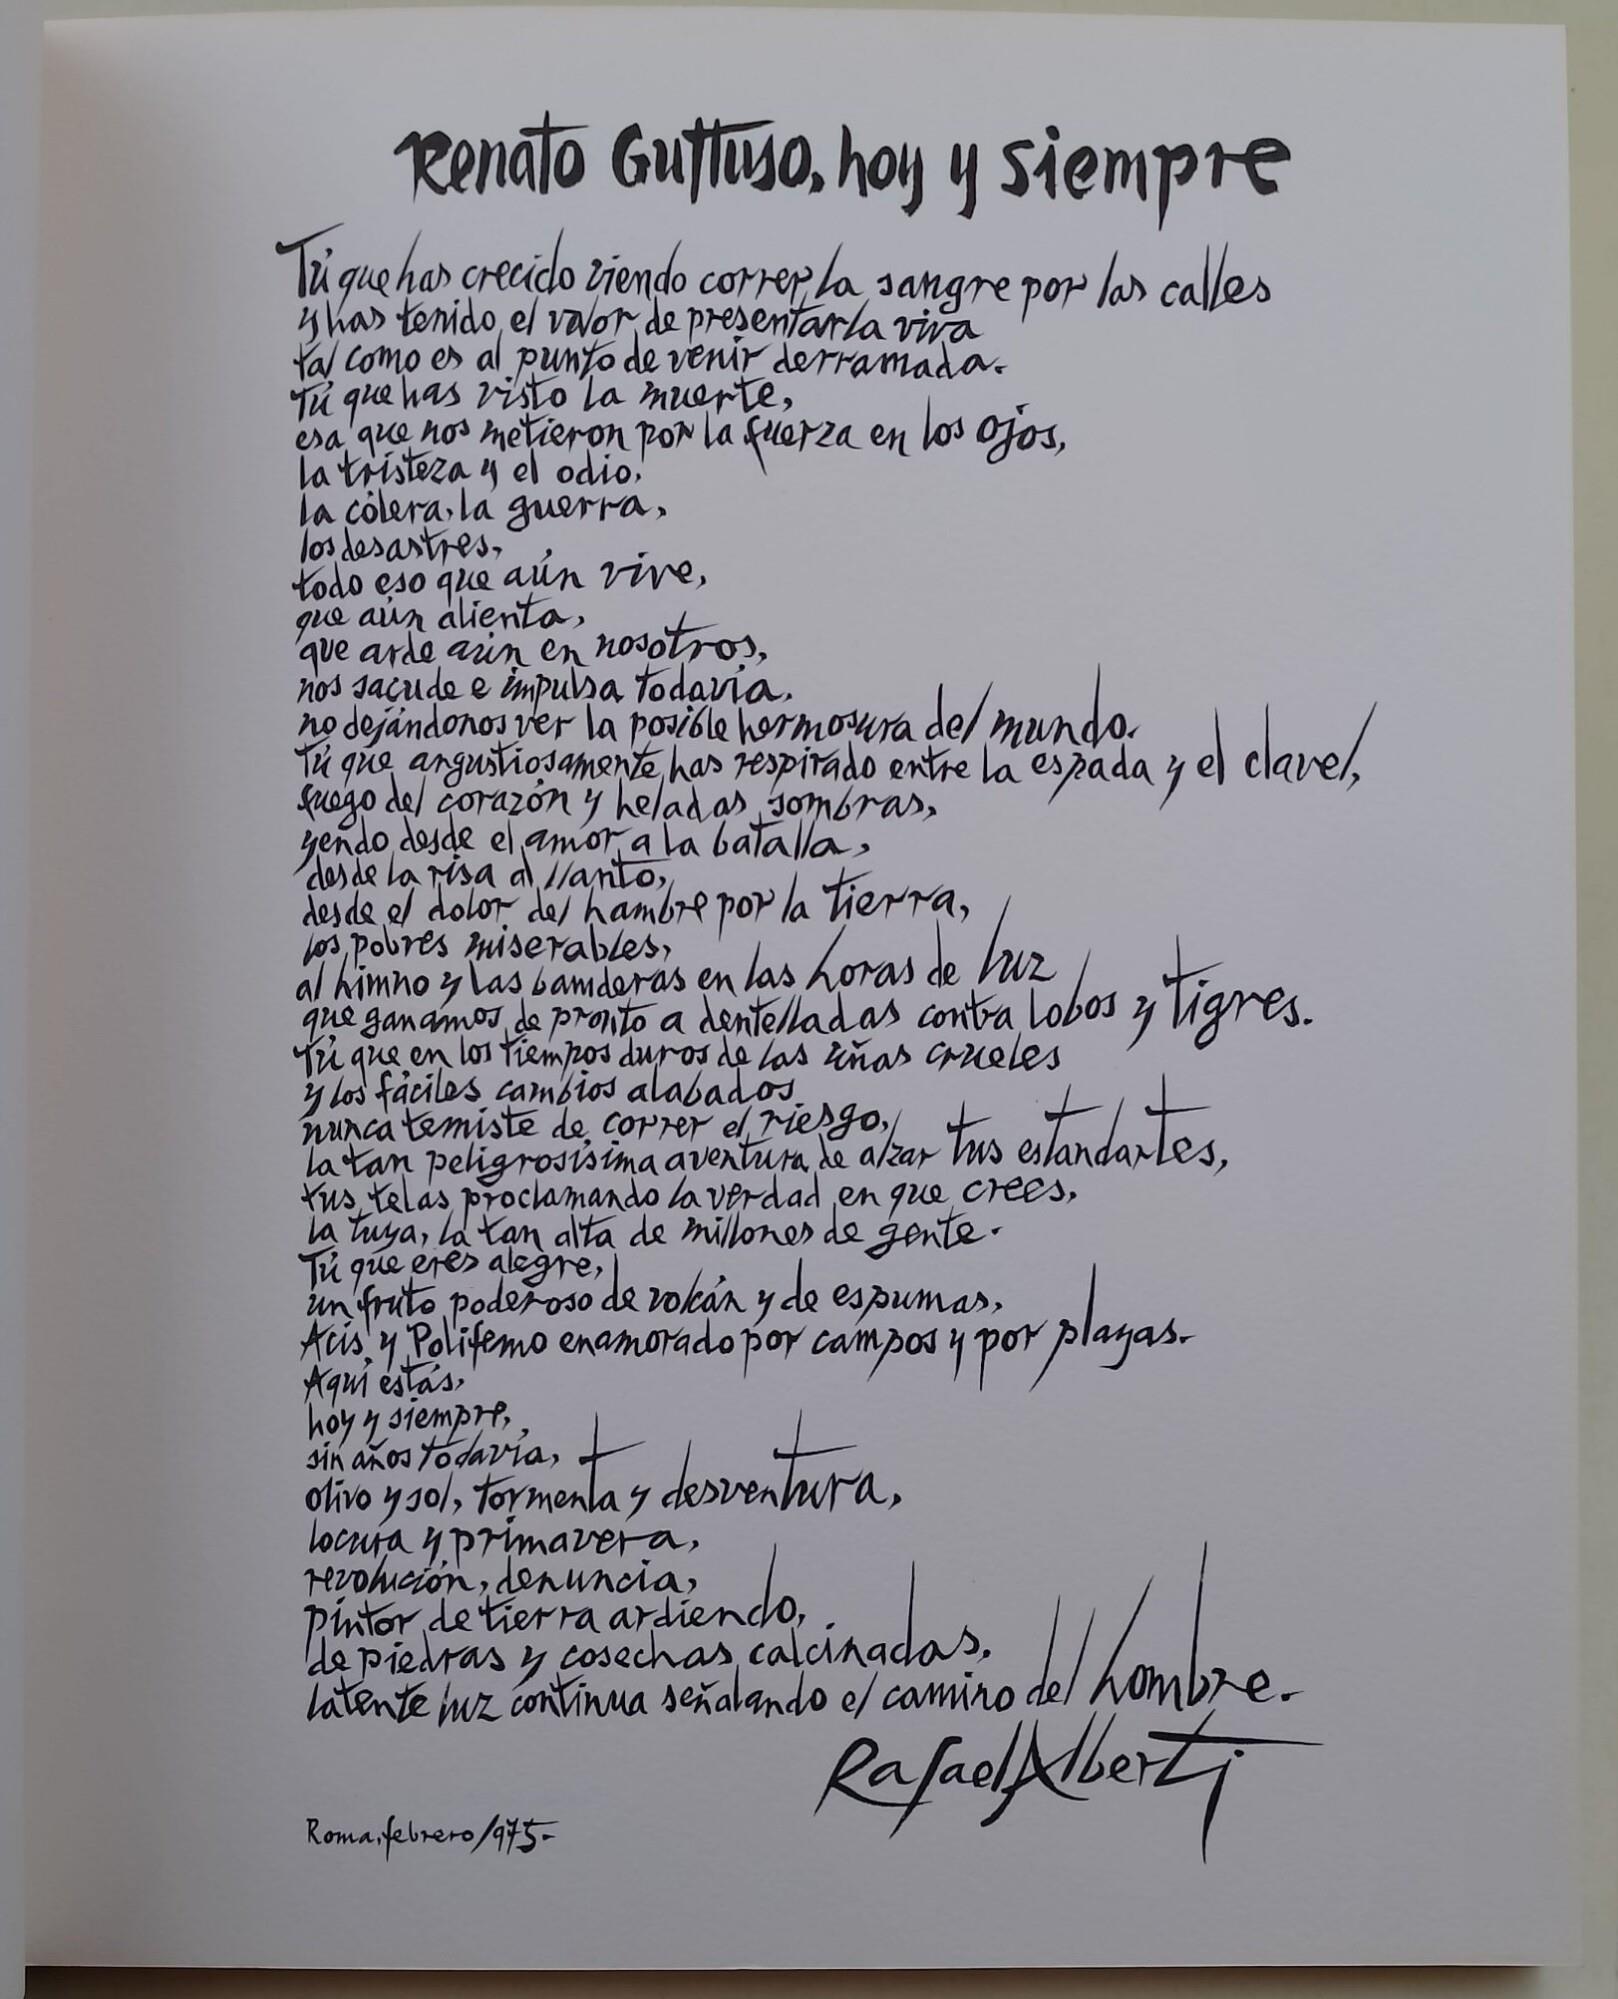 Renato Guttuso, hoy y siempre
Tú que has crecido viendo correr la sangre por las calles
y has tenido el valor de presentarla viva
tal como es al punto de venir derramada.
Tú que has visto la muerte,
esa que nos metieron por la fuerza en los ojos,
la tristeza y el odio,
la cólera, la guerra,
los desastres,
todo eso que aún vive,
que aún alienta,
que arde aún en nosotros,
nos sacude e impulsa todavía,
no dejándonos ver la posible hermosura del mundo.
Tú que angustiosamente has respirado entre la espada y el clavel,
fuego del corazón y heladas sombras,
yendo desde el amor a la batalla,
desde la risa al llanto,
desde el dolor del hambre por la tierra,
los pobres miserables,
al himno y las banderas en las horas de luz
que ganamos de pronto a dentelladas contra lobos y tigres.
Tú que en los tiempos duros de las uñas crueles
y los fáciles cambios alabados
nunca temiste de correr el riesgo,
la tan peligrosísima aventura de alzar tus estandartes,
tus telas proclamando la verdad en que crees,
la tuya, la tan alta de millones de gente.
Tú que eres alegre,
un fruto poderoso de volcán y de espumas,
Acis y Polifemo enamorado por campos y por playas.
Aquí estás,
hoy y siempre,
sin años todavía,
olivo y sol, tormenta y desventura,
locura y primavera,
revolución, denuncia,
pintor de tierra ardiendo,
de piedras y cosechas calcinadas,
latente luz continua señalando el camino del hombre.
Rafael Alberti
Roma, febrero 1975-